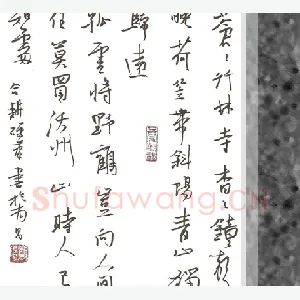 蒼〻竹林寺杳〻鐘聲
晚荷笠帶斜陽青山獨
歸遠
孤雲將野鶴豈向人間
住莫買沃州山時人已
知處
書於南昌
Shufawang.CN